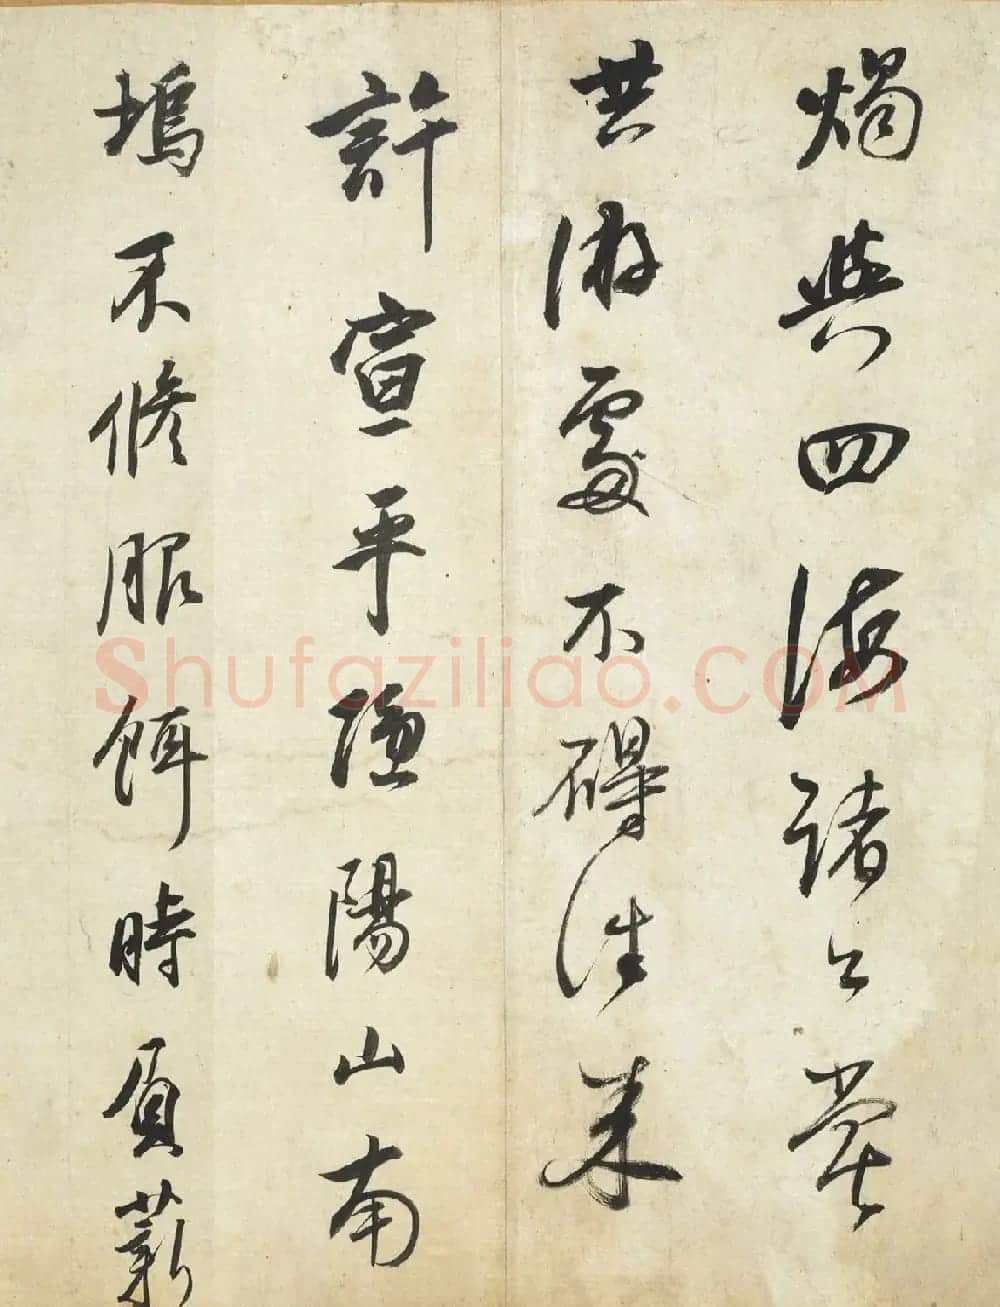 燭與四海諸公嘗
共游處不礙往來
許宣平隱陽山南
塢不修服餌時負薪
Shufaziliao.COM